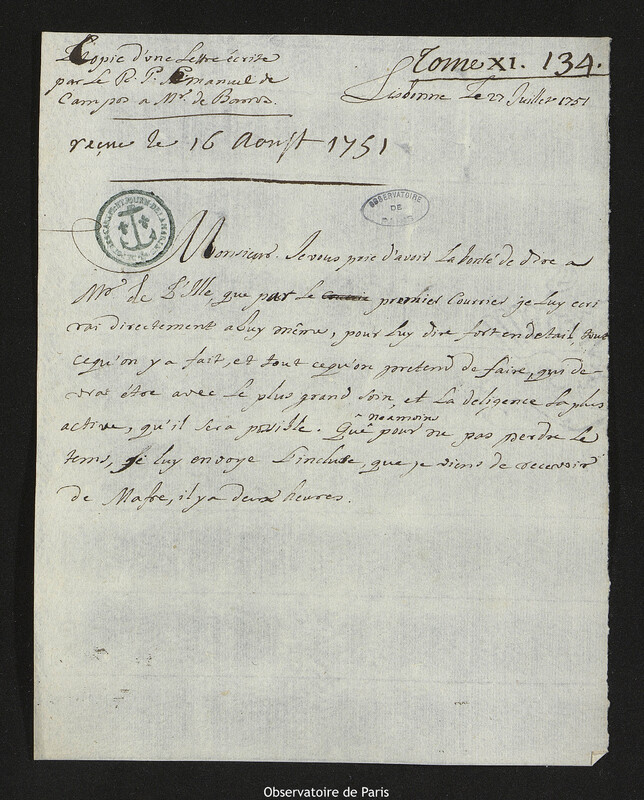 Copie d'une Lettre écrite
par Le R. P. Emanuel de
Campos a Mr. de Barros
Tome XI. 134.
Lisbonne Le 27 Juillet 1751
reçue le 16 Aoust 1751
OBSERVATOIRE
DE
PARIS
Monsieur. Je vous prie d'avoir La bonté de dire a
Mr. de L'Isle, que par Le premier Courrier je Luy ecri
rai directement a luy même, pour Luy dire fort en detail, tout
ce qu'on y a fait, et tout ce qu'on pretend de faire, qui de-
vrai être avec Le plus grand soin et La deligence La plus
active, qu'il sera possible. Que néamoins pour ne pas perdre Le
tems, je luy envoye L'incluse, que je viens de recevoir
de Mafre, il y a deux heures.
Observatoire de Paris